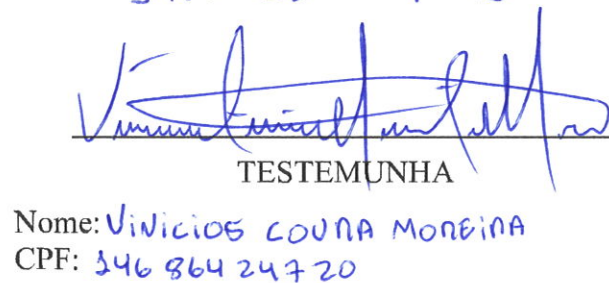 TESTEMUNHA
Nome: VINICIOS COURA MOREIRA
CPF: 146 864 247 20